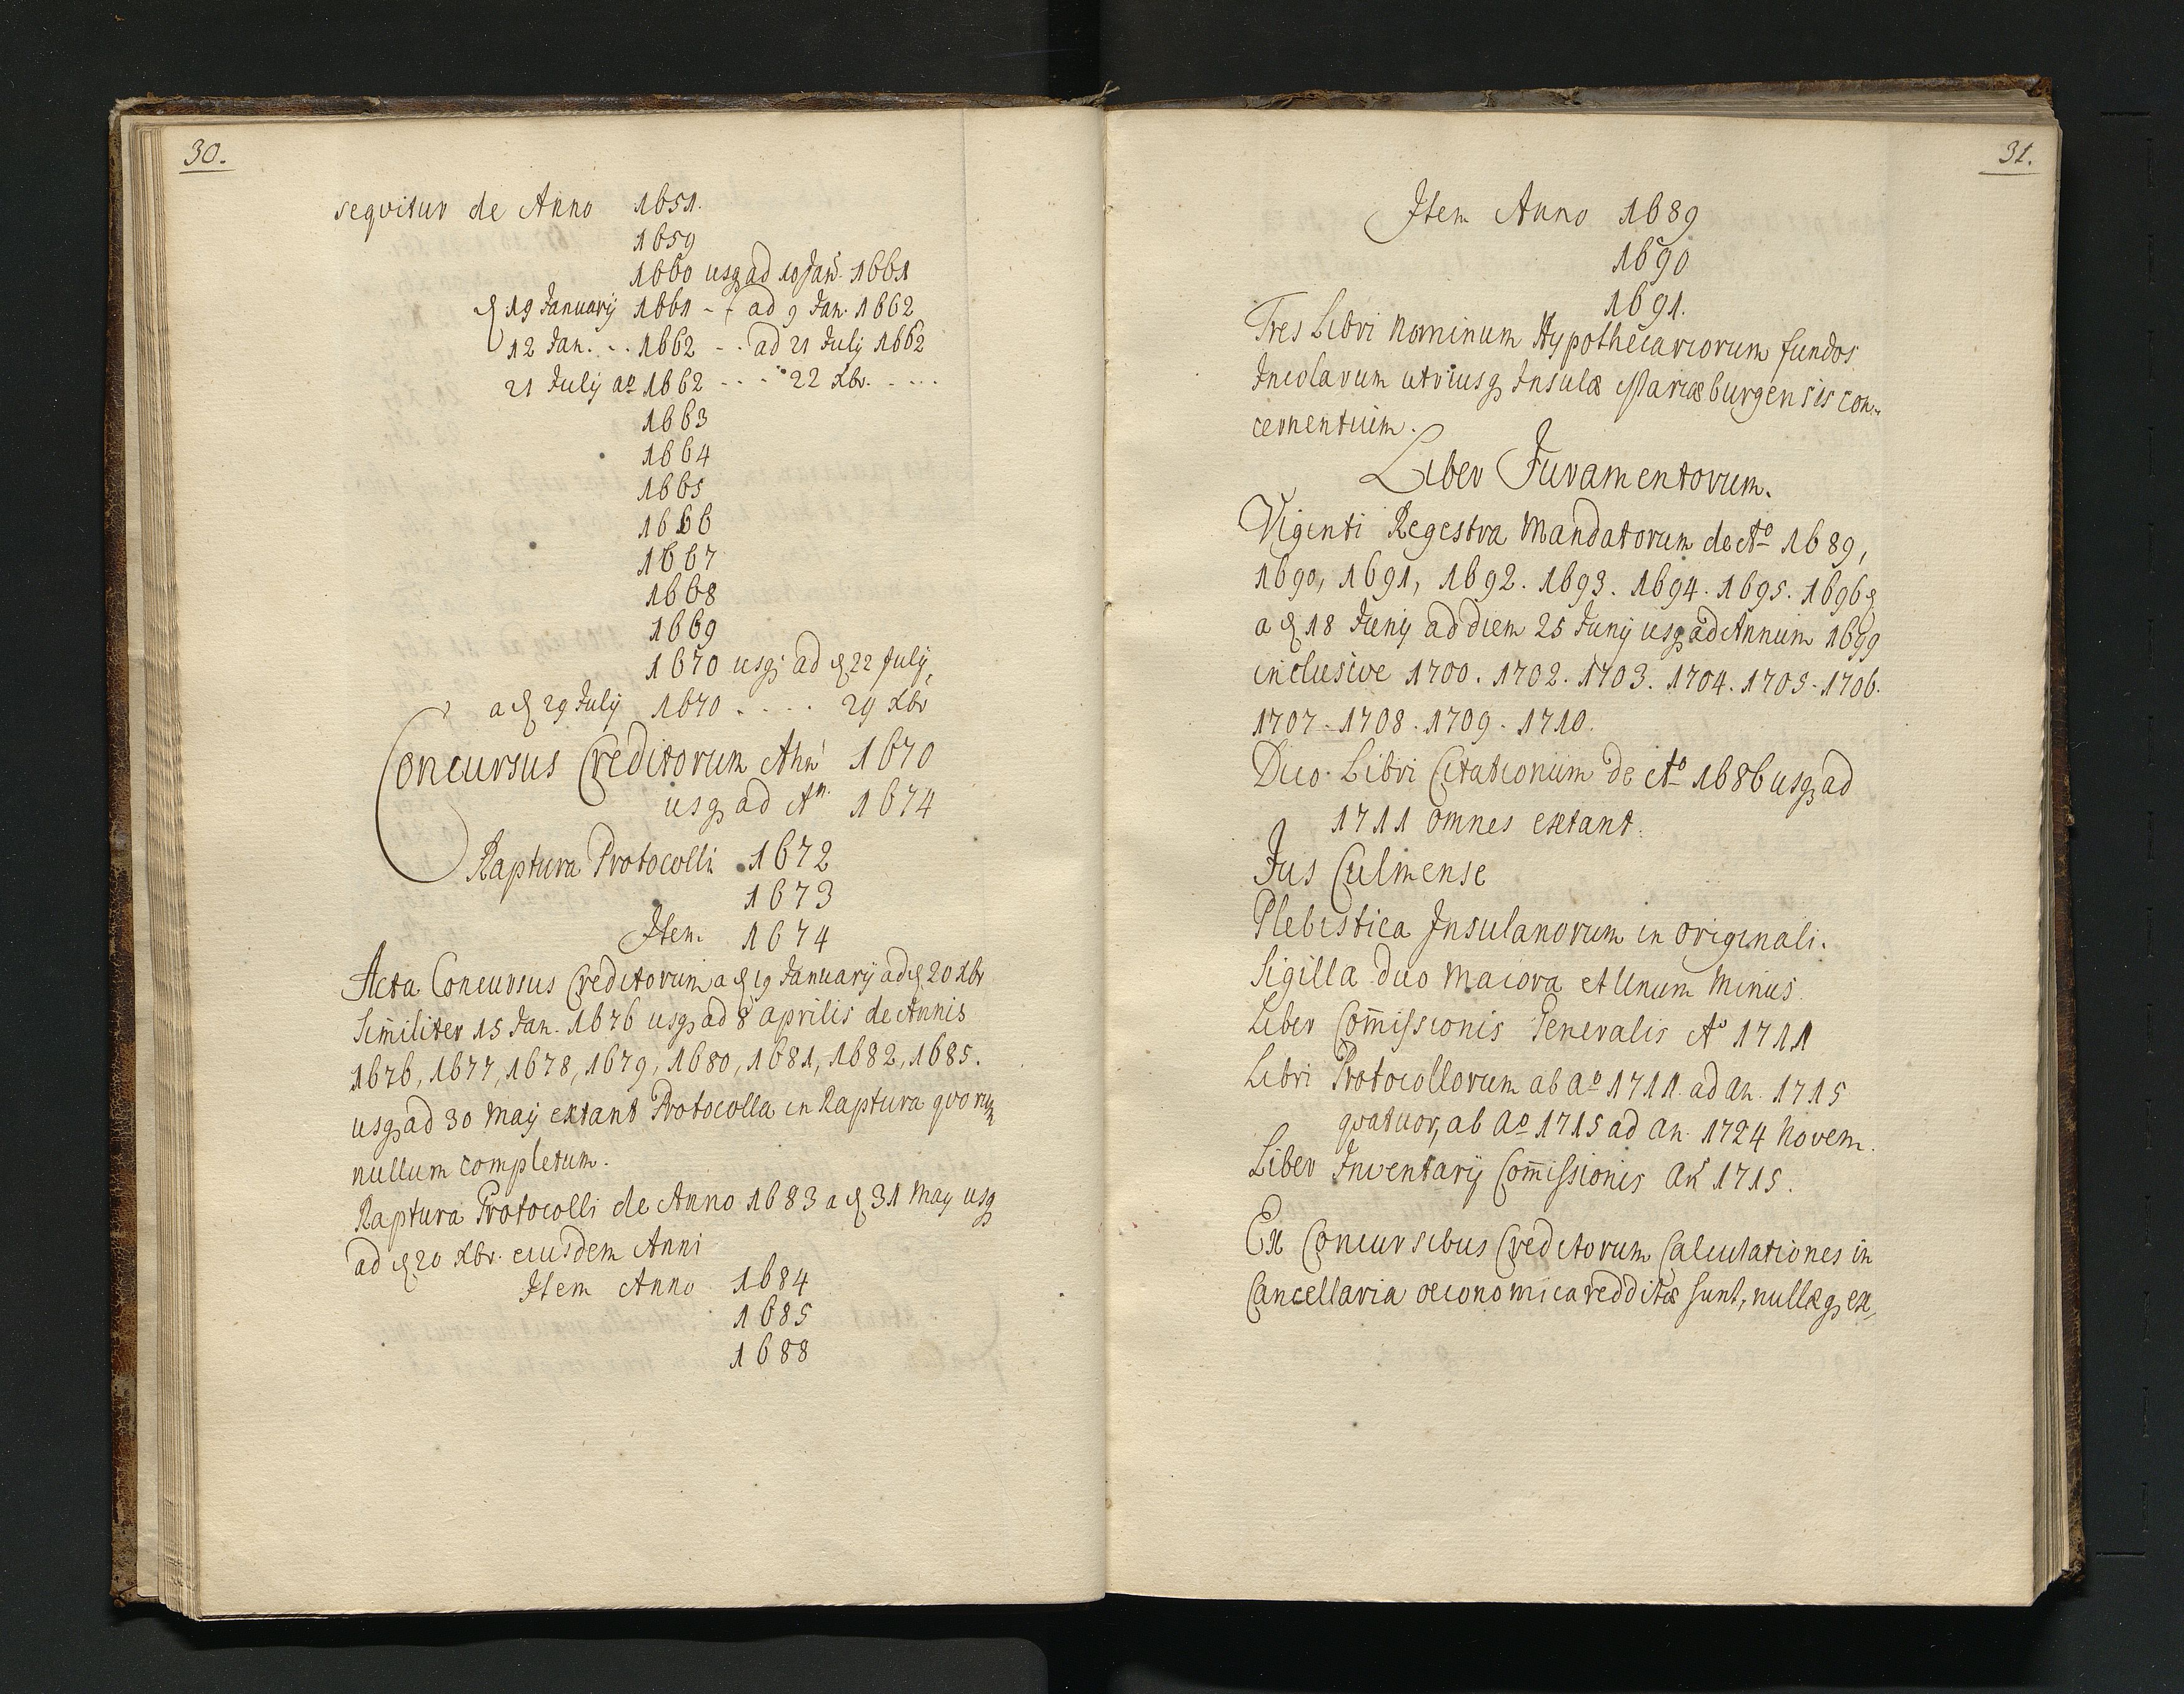 30.
seqvitur de Anno 1651.
1659
1660 usqꝫ ad 10 Jan. 1661
d. 19 Januarij 1661 - - ad 9 Jan. 1662
12 Jan. - - 1662 - - ad 21 July 1662
21 July aō 1662 - - - 22 Xbr. - - - -
1663
1664
1665
1666
1667
1668
1669
1670 usqꝫ ad d. 22 July,
a d. 29 July 1670 . . . . 29 Xbr
Concursus Creditorum Ann 1670
usqꝫ ad An. 1674
Raptura Protocolli 1672
1673
Item 1674
Acta Concursus Creditorum a d. 19 Januarij ad d. 20 Xbr
Similiter 15 Jan. 1676 usqꝫ ad 8 aprilis de Annis
1676, 1677, 1678, 1679, 1680, 1681, 1682, 1685.
usqꝫ ad 30 Maij extant Protocolla in Raptura qvorum
nullum completum.
Raptura Protocolli de Anno 1683 a d. 31 May usqꝫ
ad d. 20 Xbr. eiusdem Anni
Item Anno 1684
1685
1688
31.
Item Anno 1689
1690
1691.
Tres Libri Nominum Hypothecariorum fundos
Incolarum utriusqꝫ Insulæ Mariæburgensis con-
cernentium.
Liber Juramentorum.
Viginti Regestra Mandatorum de Aō 1689,
1690, 1691, 1692. 1693. 1694. 1695. 1696
a d. 18 Junij ad diem 25 Junij usqꝫ ad Annum 1699
inclusive 1700. 1702. 1703. 1704. 1705. 1706.
1707 - 1708. 1709. 1710.
Duo Libri Citationum de Aō 1686 usqꝫ ad
1711 omnes extant.
Jus Culmense
Plebistica Insulanorum in originali.
Sigilla duo Maiora et Unum Minus.
Liber Com̄issionis Generalis Aō 1711
Libri Protocollorum ab aō 1711. ad an. 1715
qvatuor, ab aō 1715 ad an. 1724 Novem.
Liber Inventarij Com̄issionis an 1715.
Ex Concursibus Creditorum Calculationes in
Cancellaria oeconomica redditæ sunt, nullæqꝫ ex,